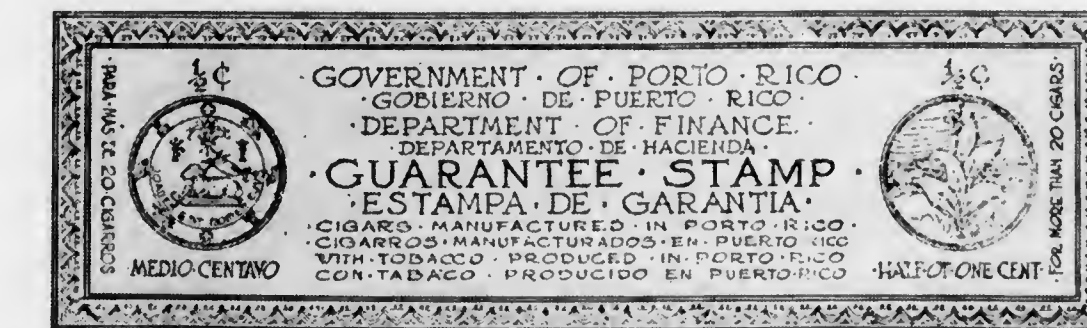 PARA·MAS DE 20·CIGARROS
½ ¢
MEDIO·CENTAVO
·GOVERNMENT · OF · PORTO · RICO ·
·GOBIERNO · DE · PUERTO · RICO·
·DEPARTMENT · OF · FINANCE·
·DEPARTAMENTO · DE · HACIENDA·
·GUARANTEE · STAMP·
·ESTAMPA · DE · GARANTIA·
·CIGARS · MANUFACTURED · IN · PORTO · RICO
·CIGARROS · MANUFACTURADOS · EN · PUERTO RICO
WITH · TOBACCO · PRODUCED · IN · PORTO · RICO
CON · TABACO · PRODUCIDO EN PUERTO·RICO
½ ¢
·HALF·OF·ONE CENT·
FOR MORE THAN 20 CIGARS·